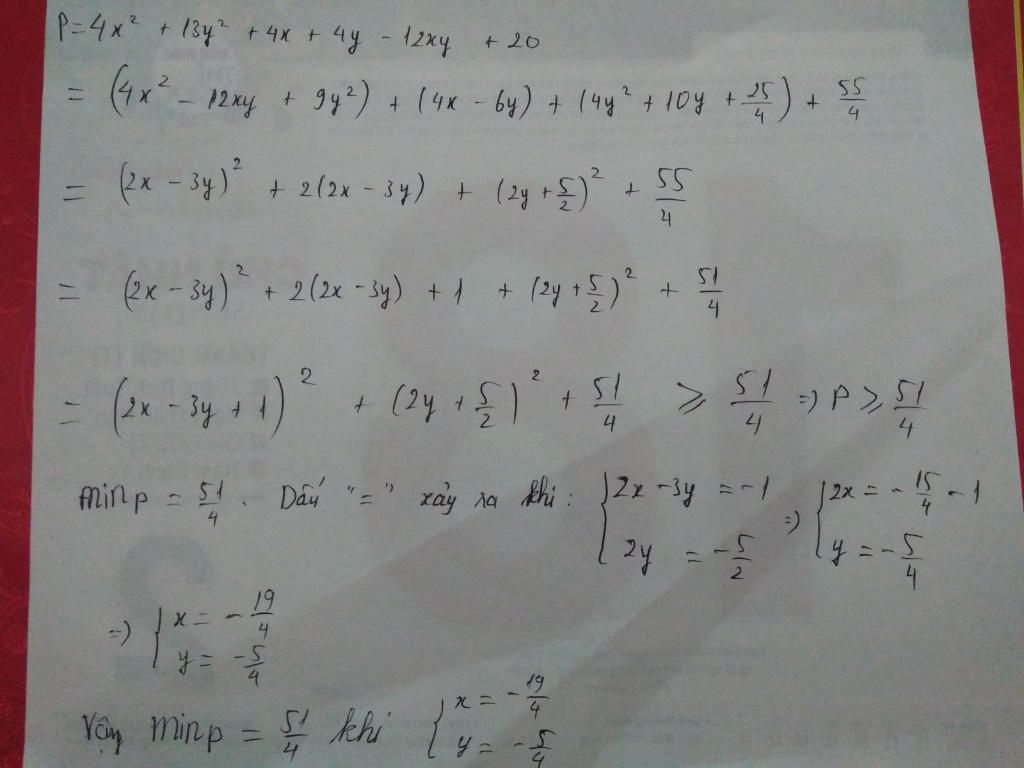 P = 4x² + 13y² + 4x + 4y - 12xy + 20
= (4x² - 12xy + 9y²) + (4x - 6y) + (4y² + 10y + 25/4) + 55/4
= (2x - 3y)² + 2(2x - 3y) + (2y + 5/2)² + 55/4
= (2x - 3y)² + 2(2x - 3y) + 1 + (2y + 5/2)² + 51/4
= (2x - 3y + 1)² + (2y + 5/2)² + 51/4 ⩾ 51/4 => P ⩾ 51/4
Min P = 51/4. Dấu "=" xảy ra khi: { 2x - 3y = -1 ; 2y = -5/2 => { 2x = -15/4 - 1 ; y = -5/4
=> { x = -19/4 ; y = -5/4
Vậy Min P = 51/4 khi { x = -19/4 ; y = -5/4